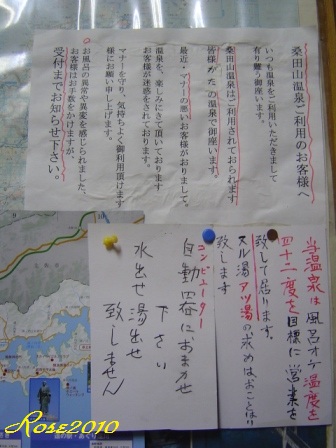 桑田山温泉ご利用のお客様へ
いつも温泉をご利用いただきまして
有り難う御座います。
桑田山温泉はご利用されておられます
皆様がたの温泉で御座います。
最近、マナーの悪いお客様がおりまして。
温泉を、楽しみにきて頂いております
お客様が迷惑をされております。
マナーを守り、気持ちよく御利用頂けます
様にお願い申し上げます。
お風呂の異常や異変を感じられました、
お客様はお手数をかけますが、
受付までお知らせ下さい。
当温泉は風呂オケ温度を
四十二度を目標に営業を
致して居ります。
ヌル湯アツ湯の求めはおことはり
致します
コンピューター
自動四谷におまかせ
下さい
水出せ湯出せ
致しません
Rose2010